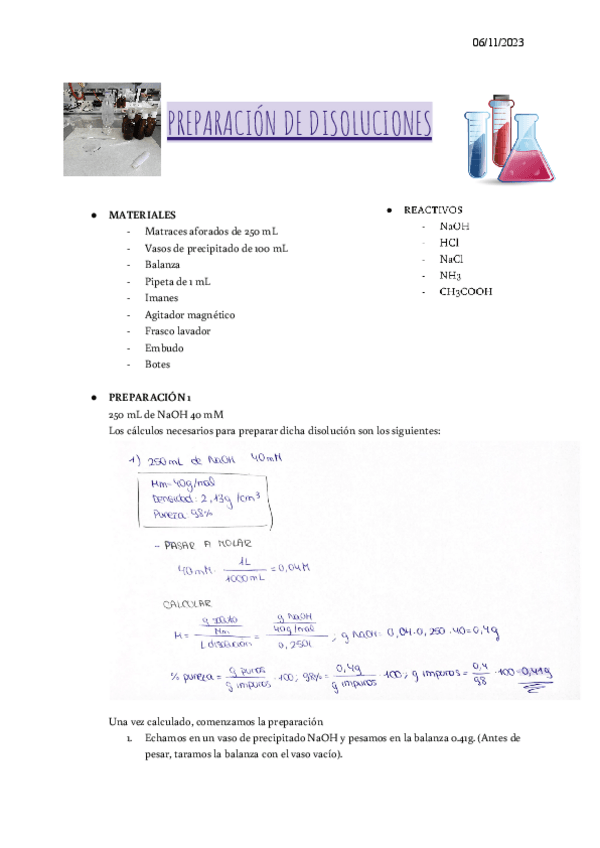 06/11/2023
PREPARACIÓN DE DISOLUCIONES
● MATERIALES
- Matraces aforados de 250 mL
- Vasos de precipitado de 100 mL
- Balanza
- Pipeta de 1 mL
- Imanes
- Agitador magnético
- Frasco lavador
- Embudo
- Botes
● REACTIVOS
- NaOH
- HCl
- NaCl
- NH3
- CH3COOH
● PREPARACIÓN 1
250 mL de NaOH 40 mM
Los cálculos necesarios para preparar dicha disolución son los siguientes:
1) 250 mL de NaOH 40 mM
Mm=40g/mol
Densidad: 2,13g/cm³
Pureza: 98%
- PASAR A MOLAR
40 mM · 1L / 1000 mL = 0,04 M
CALCULAR
M = (g soluto / Mm) / L disolución = (g NaOH / 40g/mol) / 0,250L ; g NaOH: 0,04·0,250·40=0,4g
% pureza = g puros / g impuros · 100; 98% = 0,4g / g impuros · 100; g impuros = 0,4 / 98 · 100=0,41g
Una vez calculado, comenzamos la preparación
1. Echamos en un vaso de precipitado NaOH y pesamos en la balanza 0.41g. (Antes de
pesar, taramos la balanza con el vaso vacío).